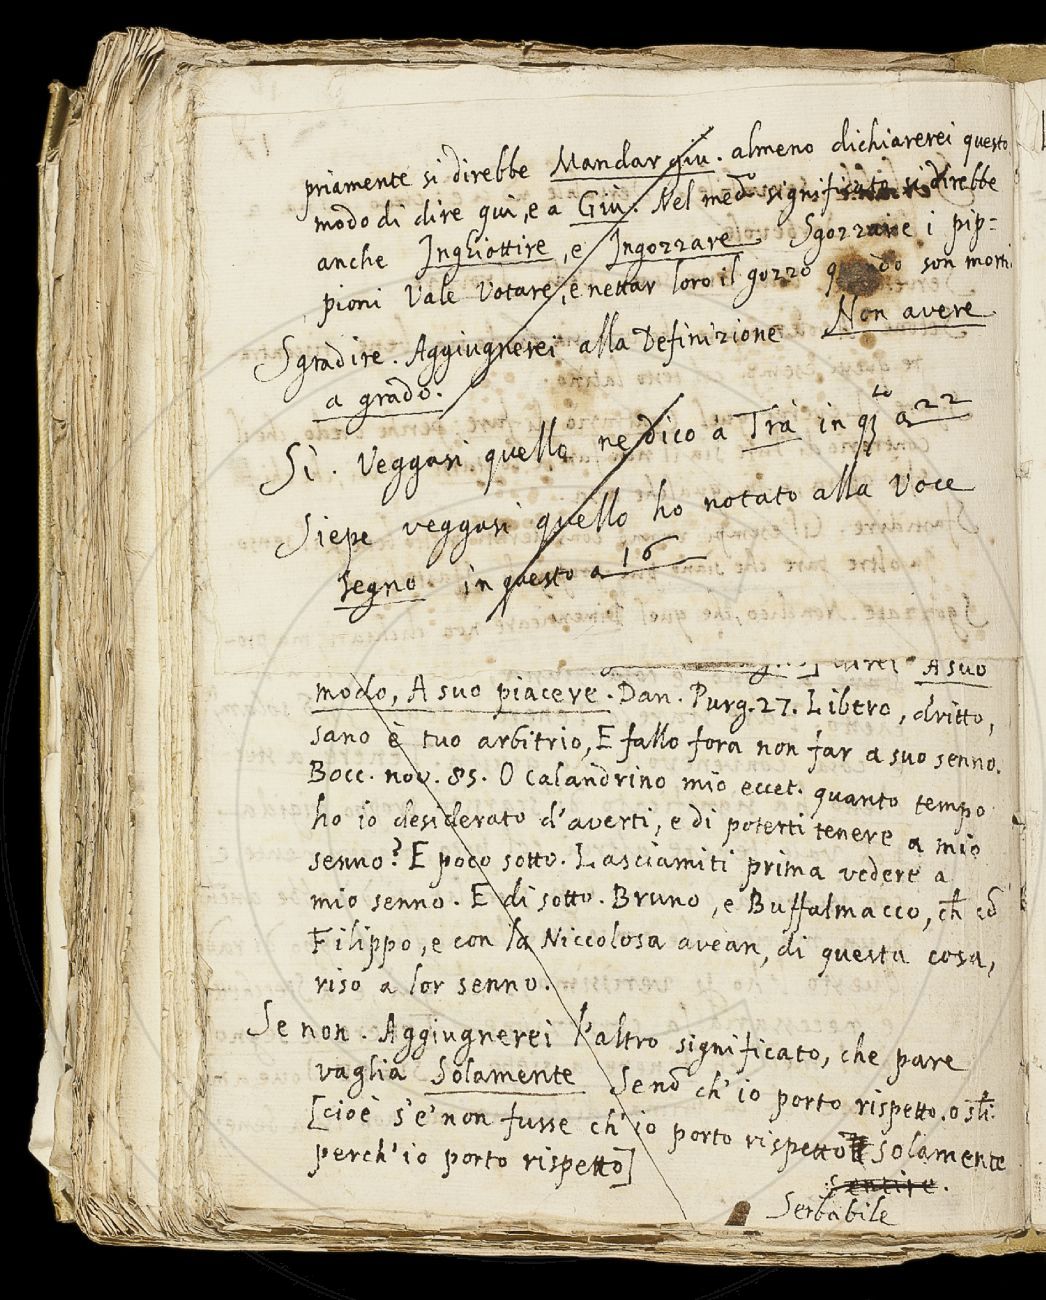 priamente si direbbe Mandar giu. almeno dichiarerei questo
modo di dire qui, e a Giù. Nel med.º significato si direbbe
anche Inghiottire, e Ingozzare Sgozzare i pip=
pioni Vale Votare, e nettar loro il gozzo quando son morti
Sgradire. Aggiugnerei alla Definizione Non avere
a grado.
Sì. Veggasi quello ne dico a Tra in q.to a 22
Siepe veggasi quello ho notato alla Voce
Segno in questo a 16
direi A suo
modo, A suo piacere. Dan. Purg. 27. Libero, dritto,
sano è tuo arbitrio, E fallo fora non far a suo senno.
Bocc. nov. 85. O Calandrino mio eccet. quanto tempo
ho io desiderato d'averti, e di poterti tenere a mio
senno? E poco sotto. Lasciamiti prima vedere a
mio senno. E di sotto. Bruno, e Buffalmacco, ch̃ cõ
Filippo, e con la Niccolosa avean, di questa cosa,
riso a lor senno.
Se non. Aggiugnerei l'altro significato, che pare
vaglia Solamente Senõ ch'io porto rispetto. o sĩli
[cioè s'e' non fusse ch'io porto rispetto solamente
perch'io porto rispetto]
Sentire.
Serbabile